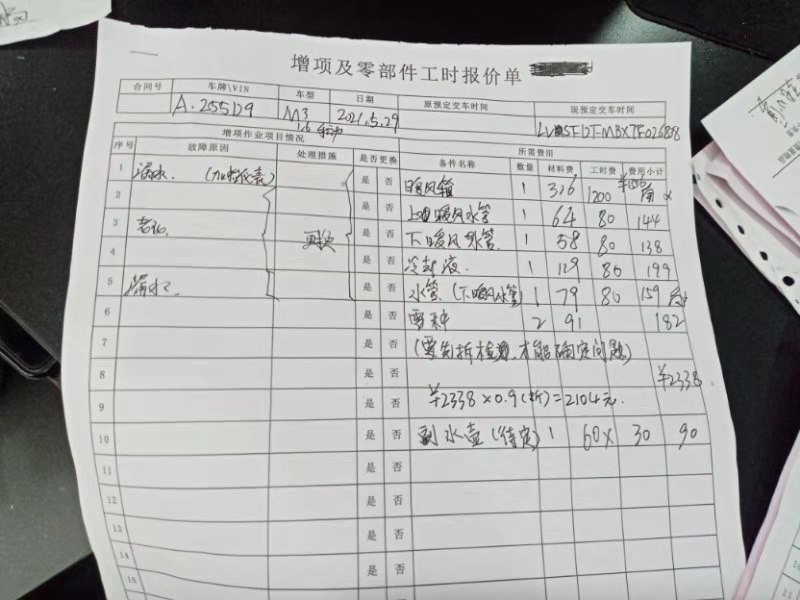 增项及零部件工时报价单
合同号 车牌\VIN 车型 日期 原预定交车时间 现预定交车时间
A.255D9 M3 2021.5.29
1.6
增项作业项目情况 所需费用
序号 故障原因 处理措施 是否更换 条件名称 数量 材料费 工时费 费用小计
1 漏水. 是 否 暖风箱 1 316 1200
2 是 否 上 暖风水管 1 64 80 144
3 老化. 更换 是 否 下暖风水管. 1 58 80 138
4 是 否 冷却液. 1 119 80 199
5 漏水 是 否 水管 (下暖风水管) 1 79 80 159
6 是 否 2 91 182
7 是 否 (需先拆检测,才能确定问题)
8 是 否 ¥2338
9 是 否 ¥2338×0.9(折)=2104元.
10 是 否 副水壶(待定) 1 60× 30 90
11 是 否
12 是 否
13 是 否
14 是 否
15